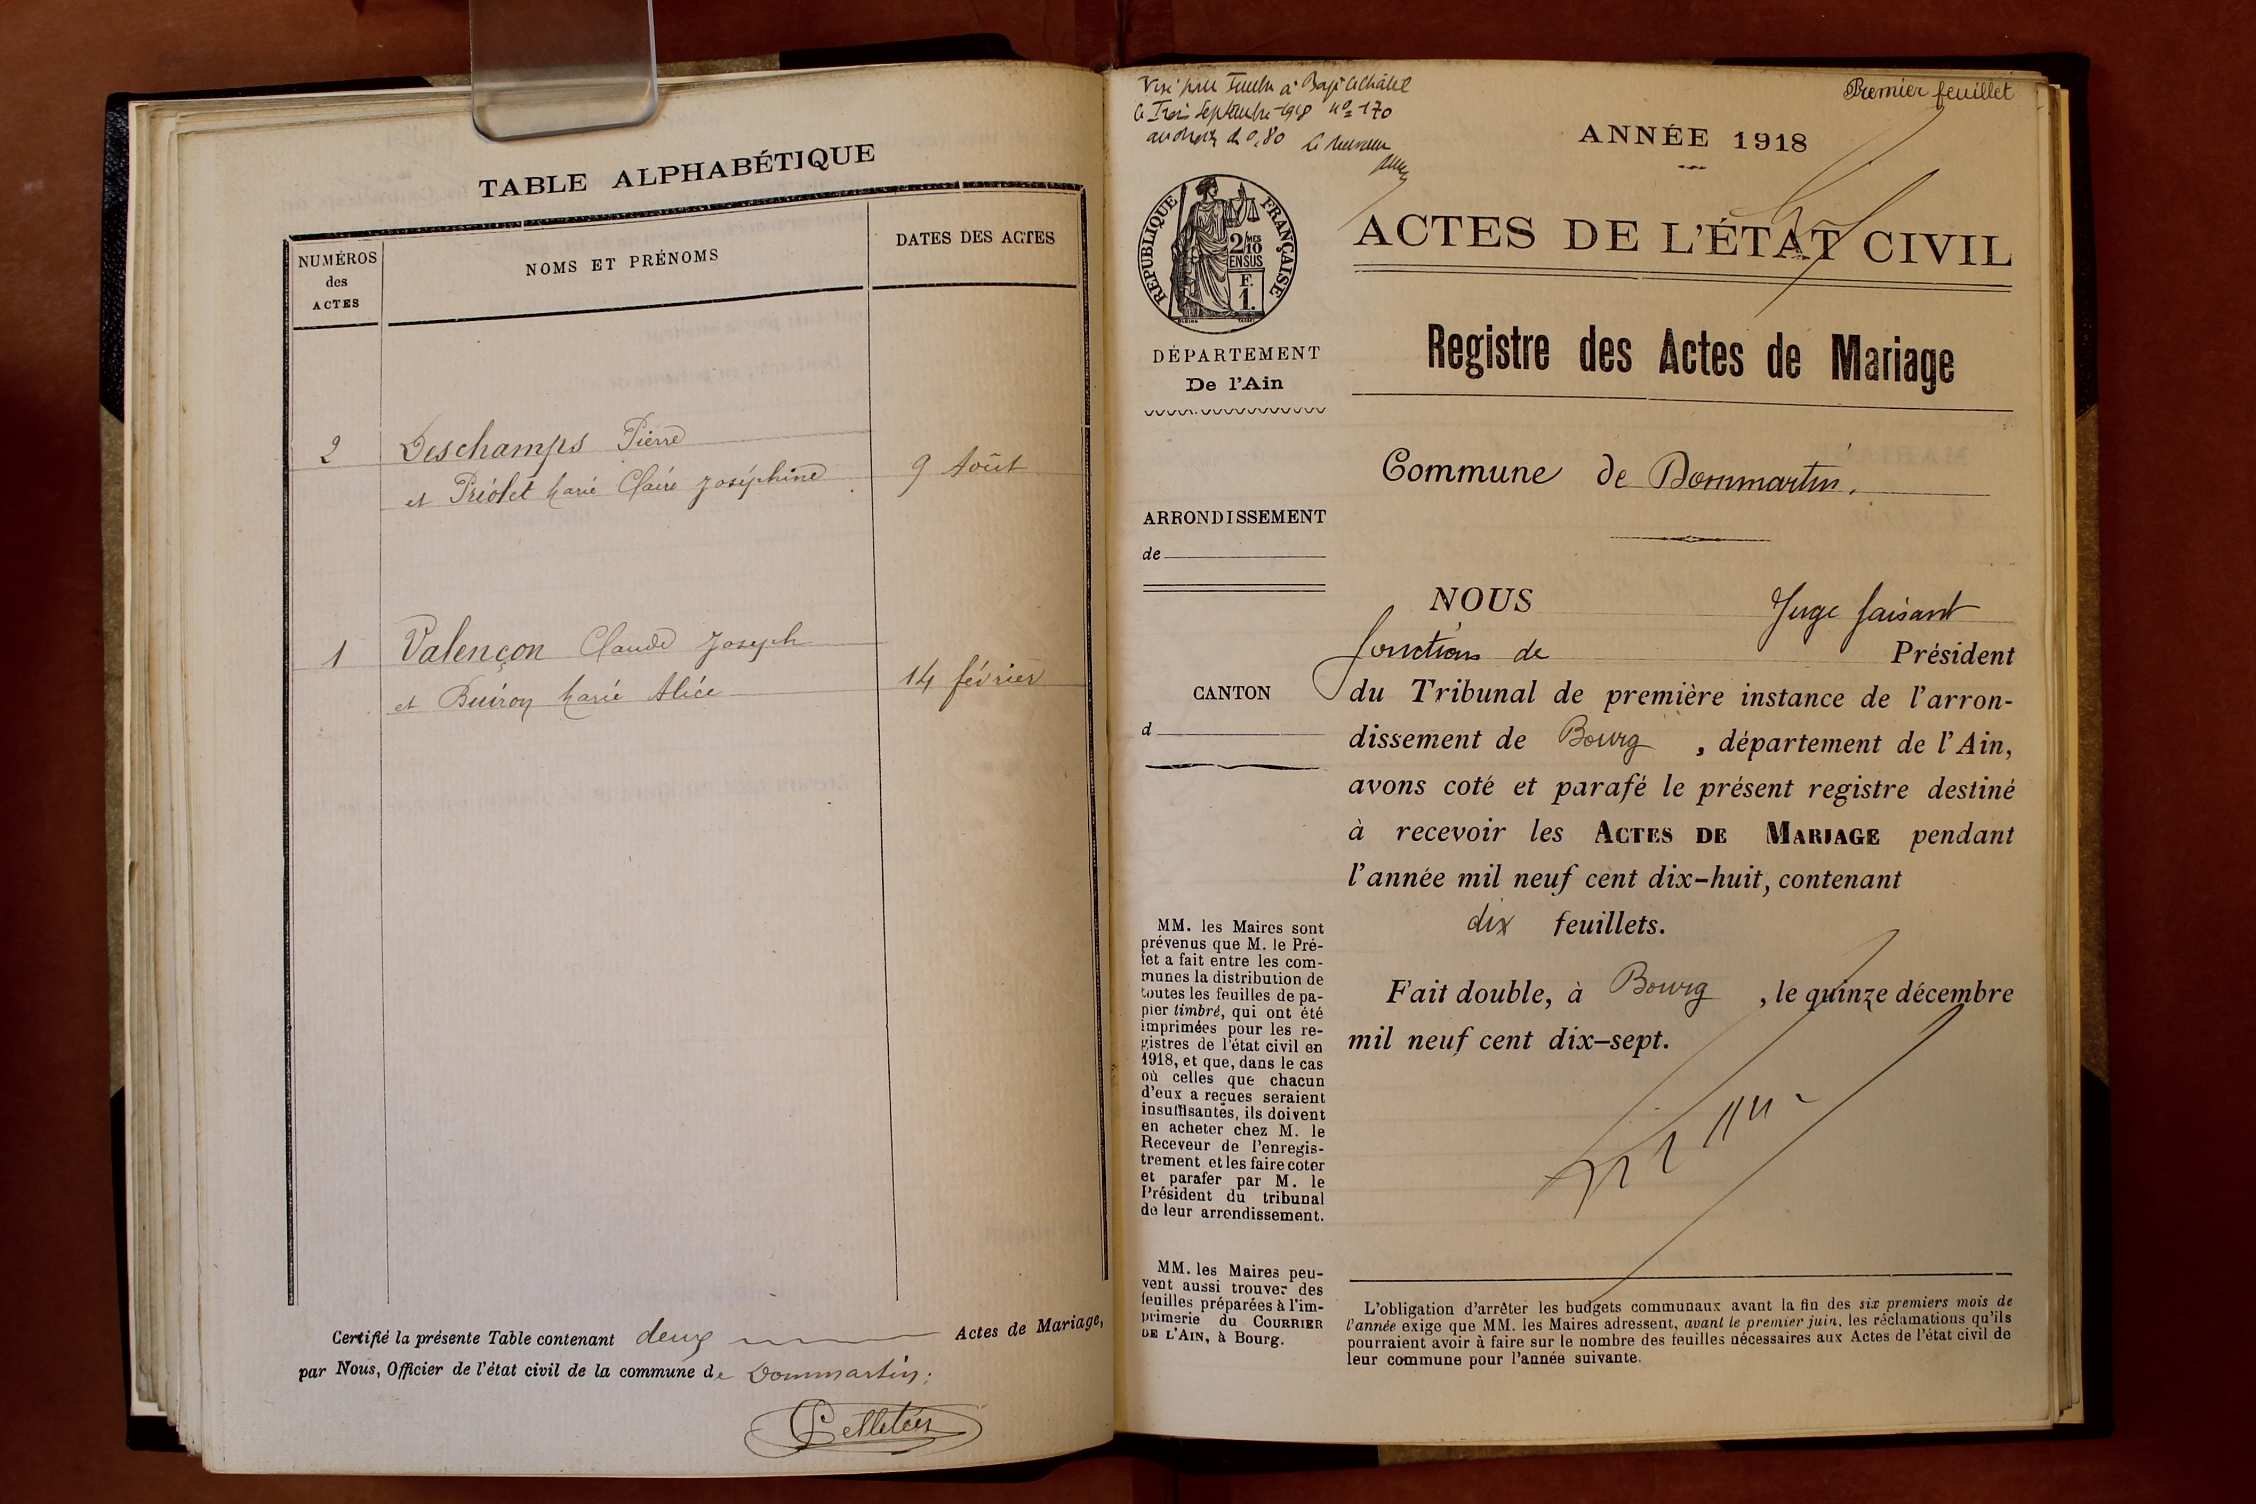 TABLE ALPHABÉTIQUE
NUMÉROS
des
ACTES
NOMS ET PRÉNOMS
DATES DES ACTES
2
Deschamps Pierre
et Priolet Marie Claire Joséphine
9 Août
1
Valençon Claude Joseph
et Buiron Marie Alice
14 février
Certifié la présente Table contenant deux Actes de Mariage,
par Nous, Officier de l'état civil de la commune de Dommartin.
Pelletier
Visé pour Timbre à Bagé le Châtel
le Trois Septembre 1918 nº 170
au droit de 0,80
Premier feuillet
ANNÉE 1918
REPUBLIQUE FRANÇAISE
2/10MES
EN SUS
F.
1.
ACTES DE L'ÉTAT CIVIL
DÉPARTEMENT
De l'Ain
Registre des Actes de Mariage
Commune de Dommartin.
ARRONDISSEMENT
de
CANTON
d
NOUS Juge faisant
fonctions de Président
du Tribunal de première instance de l'arron-
dissement de Bourg, département de l'Ain,
avons coté et parafé le présent registre destiné
à recevoir les ACTES DE MARIAGE pendant
l'année mil neuf cent dix-huit, contenant
dix feuillets.
Fait double, à Bourg, le quinze décembre
mil neuf cent dix-sept.
MM. les Maires sont
prévenus que M. le Pré-
fet a fait entre les com-
munes la distribution de
toutes les feuilles de pa-
pier timbré, qui ont été
imprimées pour les re-
gistres de l'état civil en
1918, et que, dans le cas
où celles que chacun
d'eux a reçues seraient
insuffisantes, ils doivent
en acheter chez M. le
Receveur de l'enregis-
trement et les faire coter
et parafer par M. le
Président du tribunal
de leur arrondissement.
MM. les Maires peu-
vent aussi trouver des
feuilles préparées à l'im-
primerie du COURRIER
DE L'AIN, à Bourg.
L'obligation d'arrêter les budgets communaux avant la fin des six premiers mois de
l'année exige que MM. les Maires adressent, avant le premier juin, les réclamations qu'ils
pourraient avoir à faire sur le nombre des feuilles nécessaires aux Actes de l'état civil de
leur commune pour l'année suivante.